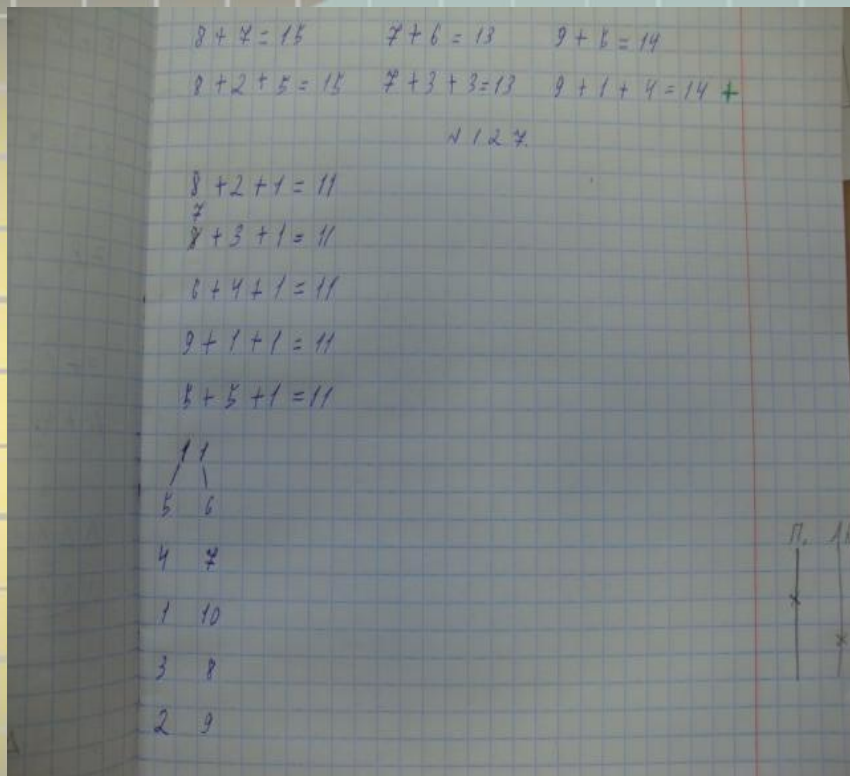 8 + 7 = 15 7 + 6 = 13 9 + 5 = 14
8 + 2 + 5 = 15 7 + 3 + 3 = 13 9 + 1 + 4 = 14 +
N 127.
8 + 2 + 1 = 11
7
8 + 3 + 1 = 11
6 + 4 + 1 = 11
9 + 1 + 1 = 11
5 + 5 + 1 = 11
11
5 6
4 7
1 10
3 8
2 9
П.